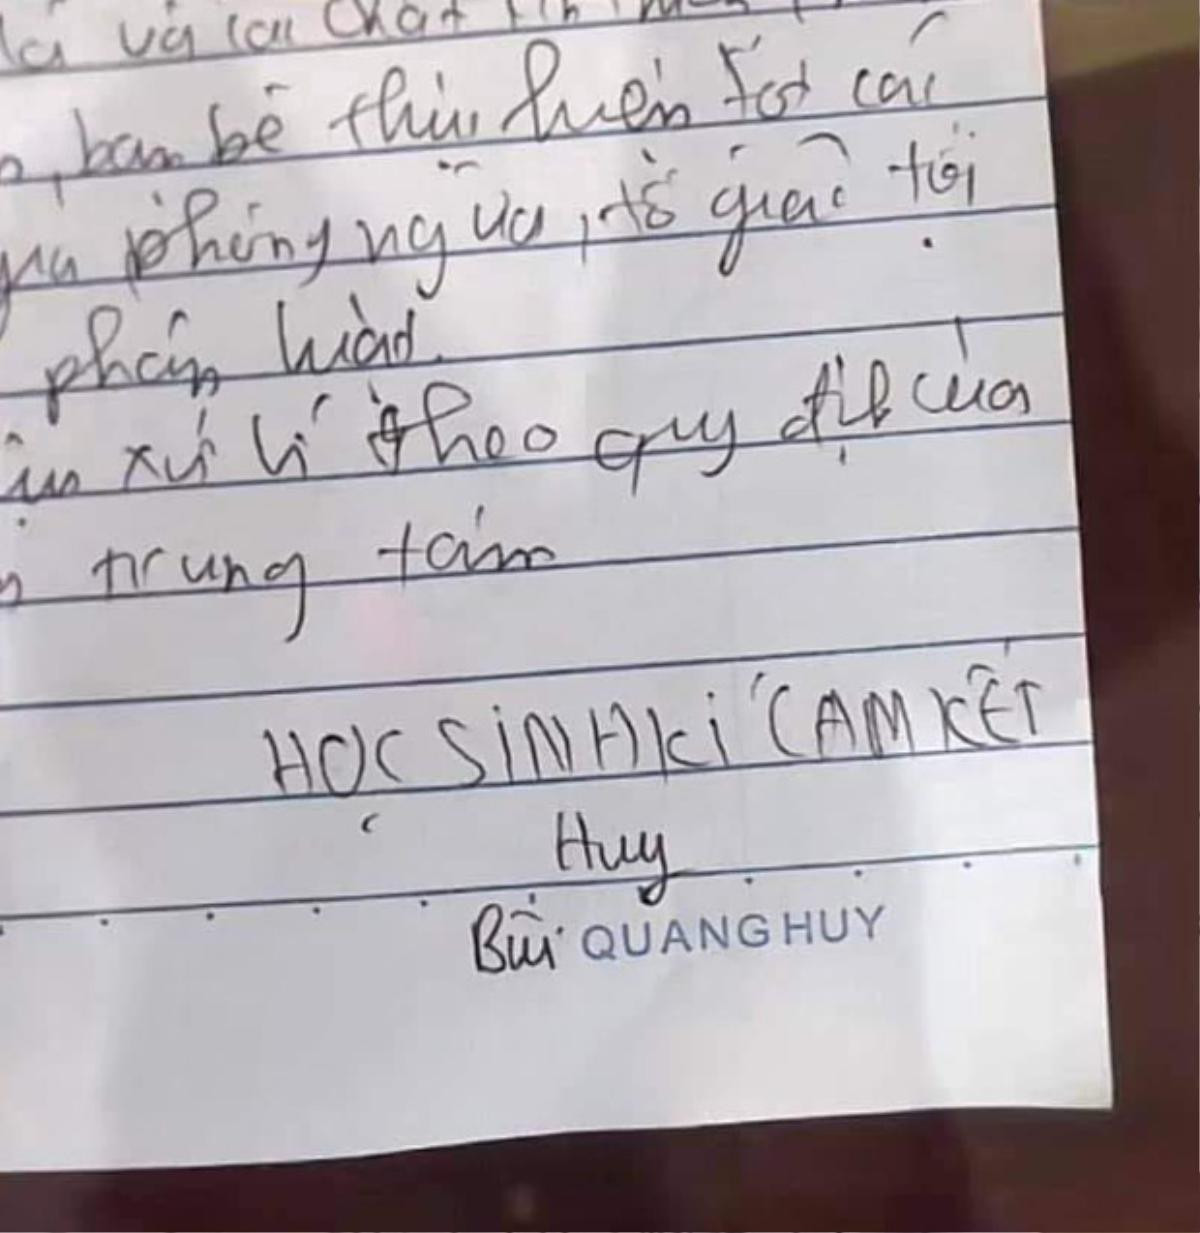 và các chất
, bạn bè thực hiện tốt các
phòng ngừa, tố giác tội
phân loại
xử lí theo quy định của
trung tâm
HỌC SINH KÍ CAM KẾT
Huy
Bùi QUANG HUY